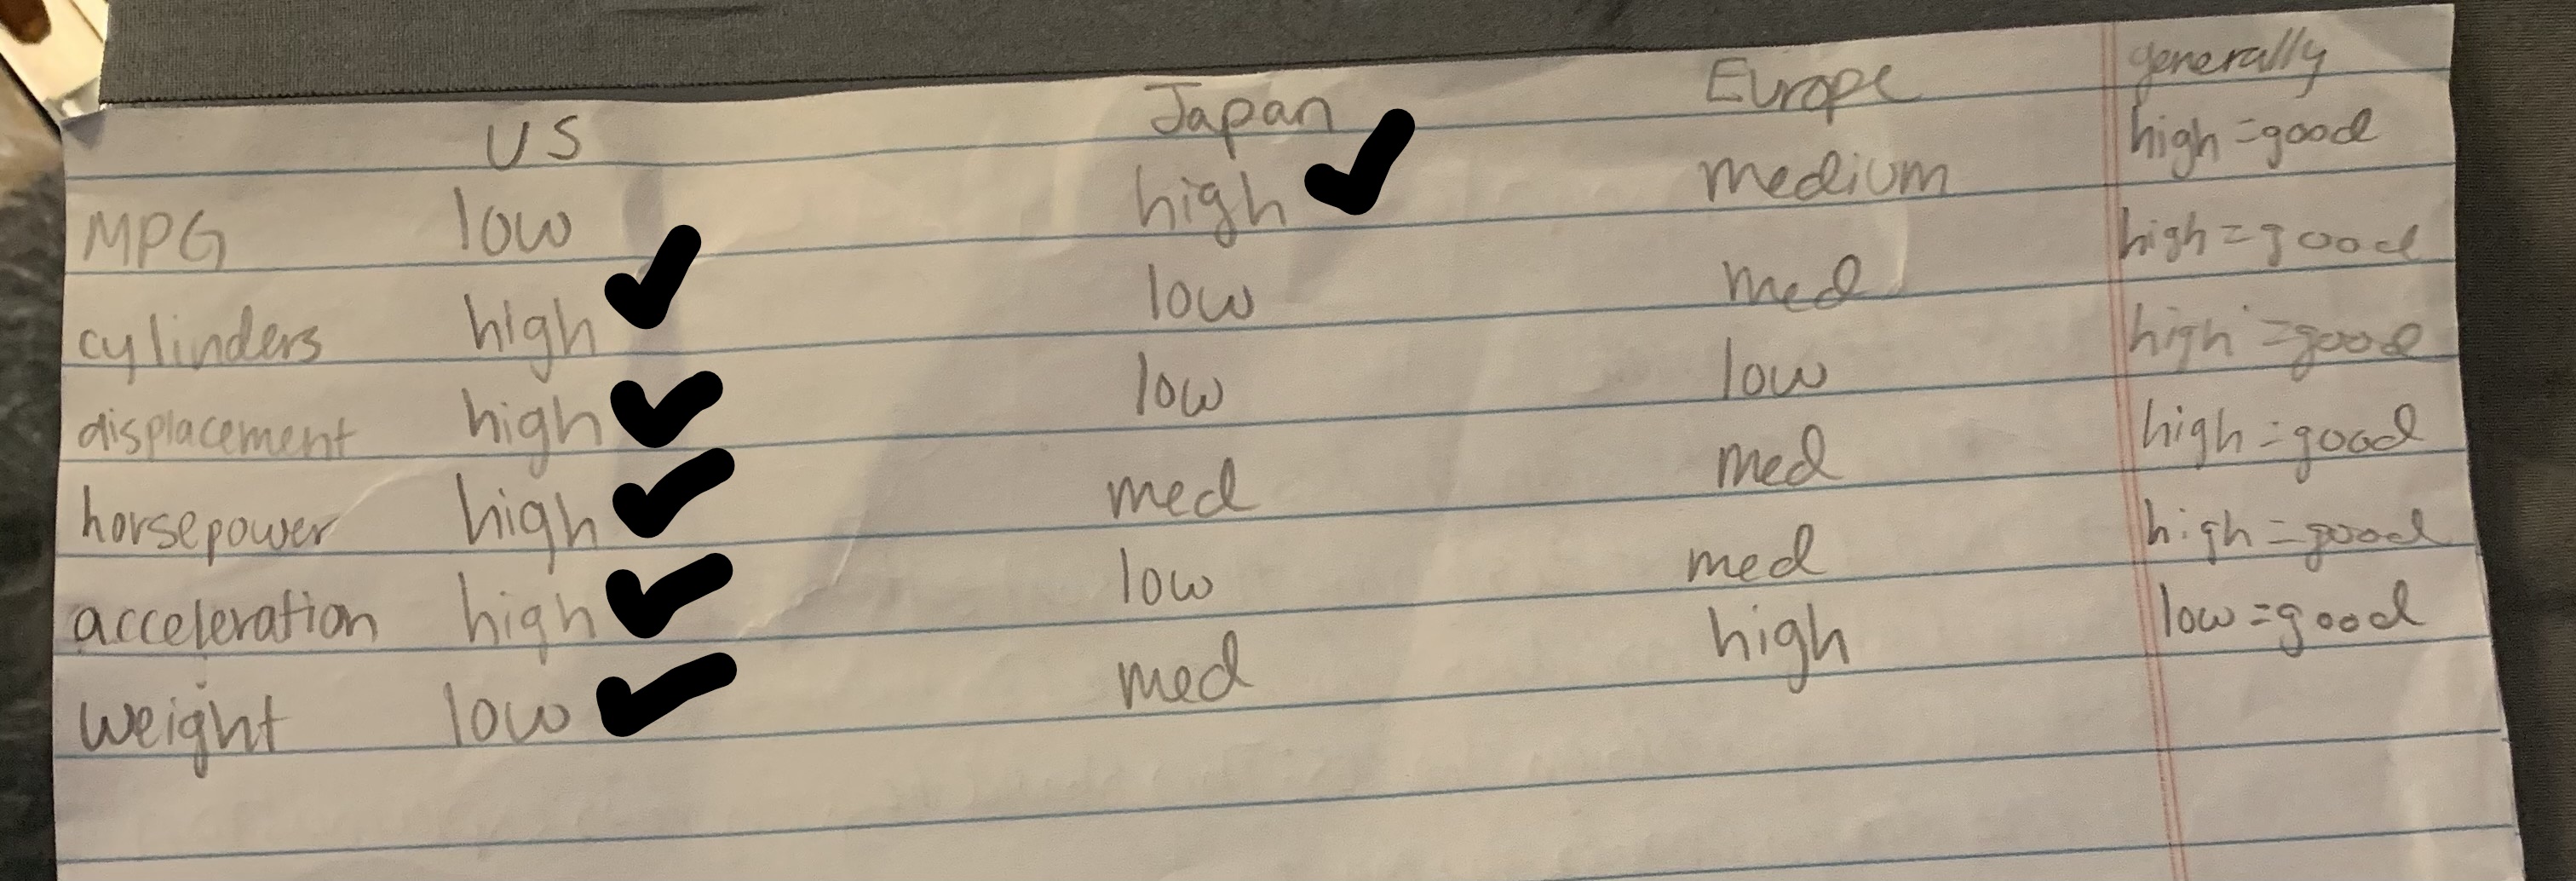 US Japan Europe generally
MPG low high ✓ medium high = good
cylinders high ✓ low med high = good
displacement high ✓ low low high = good
horsepower high ✓ med med high = good
acceleration high ✓ low med high = good
weight low ✓ med high low = good